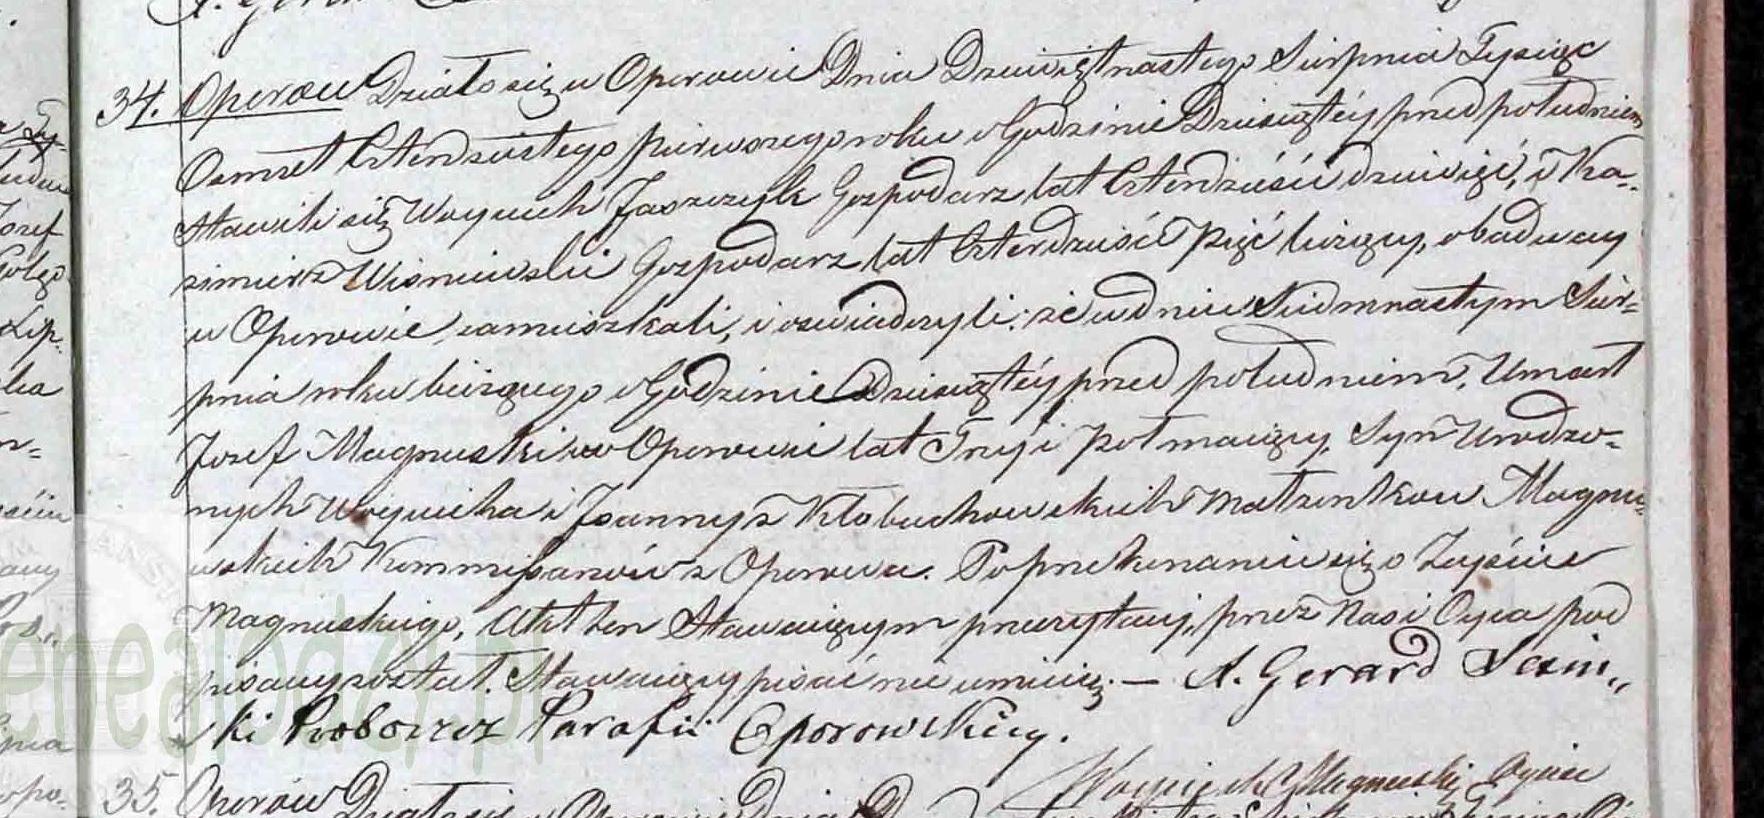 34. Oporów Działo się w Oporowie Dnia Dziewiętnastego Sierpnia Tysiąc
Osmset Czterdziestego pierwszego roku o Godzinie Dziesiątéy przed południem
Stawili się Woyciech Jaszczyk Gospodarz lat Czterdzieści dziewięć, i Ka-
zimierz Wisniewski Gospodarz lat Czterdzieści Pięć liczący, obadway
w Oporowie zamieszkali, i oswiadczyli: że w dniu Siedmnastym Sier-
pnia roku bieżącego o Godzinie Dziesiątéy przed południem, Umarł
Jozef Magnuski w Oporowie lat Trzy i poł maiący, Syn Urodzo-
nych Woyciecha i Joanny z Kłobuchowskich Małzonkow Magnu-
wskich Kommissarzów z Oporowa. Po przekonaniu się o Zejściu
Magnuskiego, Akt ten Stawaiącym przeczytany, przez Nas i Oyca pod
pisany został. Stawaiący pisać nie umieią. — X. Gerard
ski Proboszcz Parafii Oporowskiéy.
Woyciech Magnuski Oyciec
35. Oporów Działo się w Oporowie Dnia
enealodzy.pl